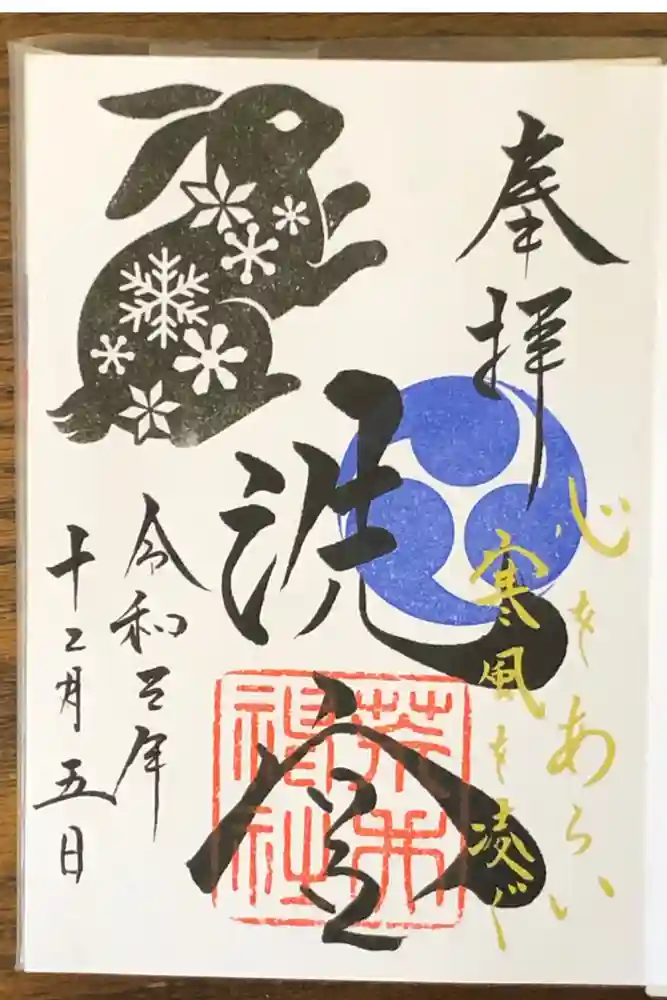 奉拝
心をあらい
寒風を凌ぐ
洗
荒井神社
令和三年
十二月五日